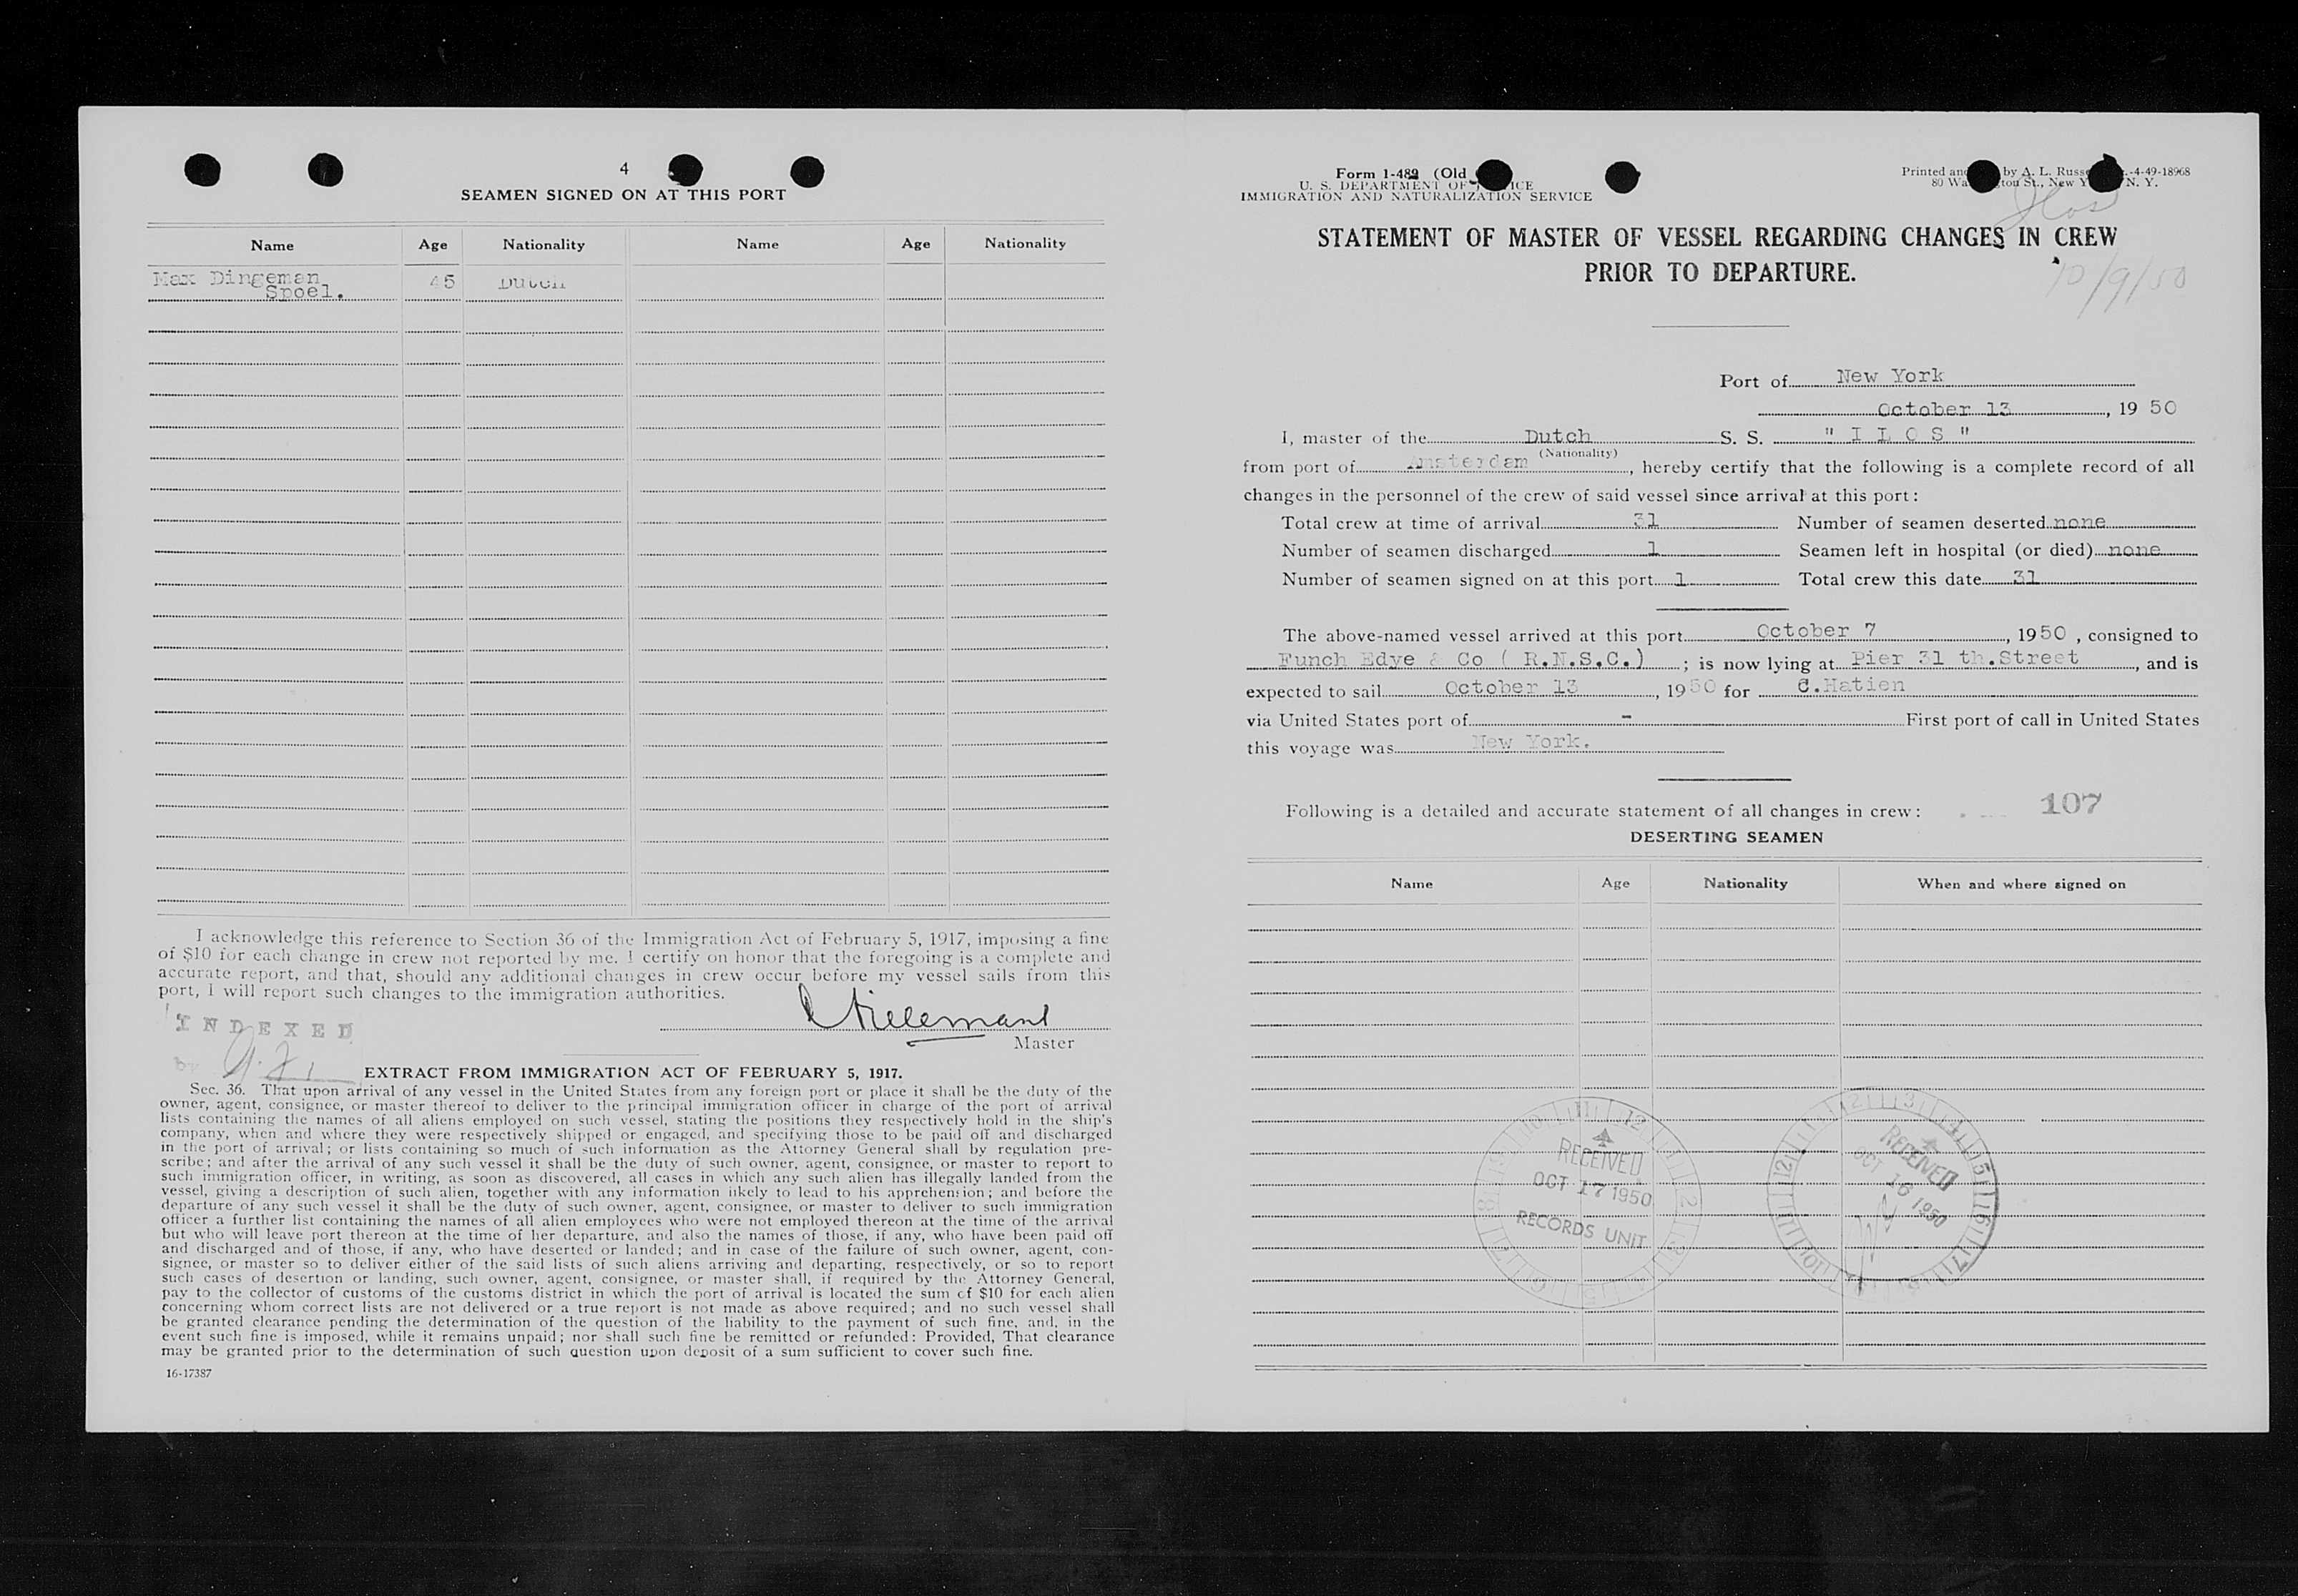 4
SEAMEN SIGNED ON AT THIS PORT
Name Age Nationality Name Age Nationality
Max Dingeman 45 Dutch
Spoel.
I acknowledge this reference to Section 36 of the Immigration Act of February 5, 1917, imposing a fine
of $10 for each change in crew not reported by me. I certify on honor that the foregoing is a complete and
accurate report, and that, should any additional changes in crew occur before my vessel sails from this
port, I will report such changes to the immigration authorities.
INDEXED
Master
EXTRACT FROM IMMIGRATION ACT OF FEBRUARY 5, 1917.
Sec. 36. That upon arrival of any vessel in the United States from any foreign port or place it shall be the duty of the
owner, agent, consignee, or master thereof to deliver to the principal immigration officer in charge of the port of arrival
lists containing the names of all aliens employed on such vessel, stating the positions they respectively hold in the ship's
company, when and where they were respectively shipped or engaged, and specifying those to be paid off and discharged
in the port of arrival; or lists containing so much of such information as the Attorney General shall by regulation pre-
scribe; and after the arrival of any such vessel it shall be the duty of such owner, agent, consignee, or master to report to
such immigration officer, in writing, as soon as discovered, all cases in which any such alien has illegally landed from the
vessel, giving a description of such alien, together with any information likely to lead to his apprehension; and before the
departure of any such vessel it shall be the duty of such owner, agent, consignee, or master to deliver to such immigration
officer a further list containing the names of all alien employees who were not employed thereon at the time of the arrival
but who will leave port thereon at the time of her departure, and also the names of those, if any, who have been paid off
and discharged and of those, if any, who have deserted or landed; and in case of the failure of such owner, agent, con-
signee, or master so to deliver either of the said lists of such aliens arriving and departing, respectively, or so to report
such cases of desertion or landing, such owner, agent, consignee, or master shall, if required by the Attorney General,
pay to the collector of customs of the customs district in which the port of arrival is located the sum of $10 for each alien
concerning whom correct lists are not delivered or a true report is not made as above required; and no such vessel shall
be granted clearance pending the determination of the question of the liability to the payment of such fine, and, in the
event such fine is imposed, while it remains unpaid; nor shall such fine be remitted or refunded: Provided, That clearance
may be granted prior to the determination of such question upon deposit of a sum sufficient to cover such fine.
16-17387
Form 1-489 (Old
U. S. DEPARTMENT OF
IMMIGRATION AND NATURALIZATION SERVICE
Printed and by A. L. -4-49-18968
80 St., New N. Y.
Ilos
STATEMENT OF MASTER OF VESSEL REGARDING CHANGES IN CREW
PRIOR TO DEPARTURE.
10/9/50
Port of New York
October 13, 1950
I, master of the Dutch S. S. "ILOS"
(Nationality)
from port of Amsterdam, hereby certify that the following is a complete record of all
changes in the personnel of the crew of said vessel since arrival at this port:
Total crew at time of arrival 31 Number of seamen deserted none
Number of seamen discharged 1 Seamen left in hospital (or died) none
Number of seamen signed on at this port 1 Total crew this date 31
The above-named vessel arrived at this port October 7, 1950, consigned to
Funch Edye & Co ( R.N.S.C.); is now lying at Pier 31 th.Street, and is
expected to sail October 13, 1950 for C.Hatien
via United States port of - First port of call in United States
this voyage was New York.
Following is a detailed and accurate statement of all changes in crew:
107
DESERTING SEAMEN
Name Age Nationality When and where signed on
RECEIVED
OCT 17 1950
RECORDS UNIT
RECEIVED
OCT 16 1950